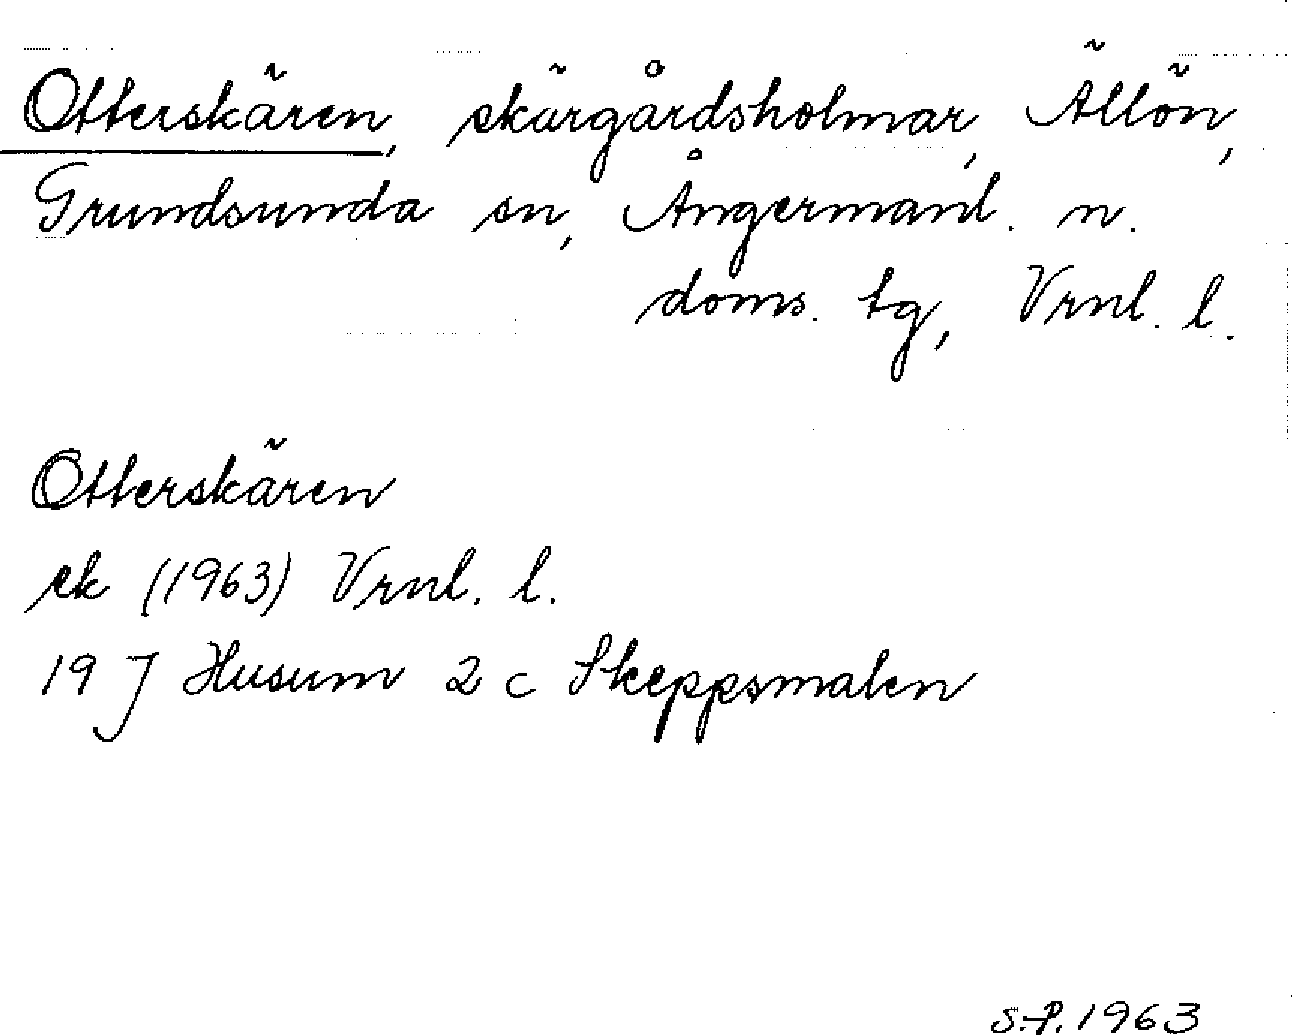 Otterskären, skärgårdsholmar, Ällön,
Grundsunda sn, Ångermanl. n.
doms. tg, Vrnl. l.
Otterskären
ek (1963) Vrnl. l.
19 J Husum 2 c Skeppsmalen
S.-P. 1963